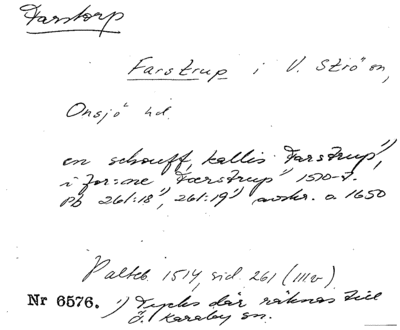 Farstorp
Farstrup i V. Strö sn,
Onsjö hd.
en schouff, kallis Farstrup¹⁾,
i for:ne Færstrup¹⁾ 1510-t.
Pb 261:18¹⁾, 261:19¹⁾ avskr. a 1650
Palteb. 1514, sid. 261 (III v)
Nr 6576. ¹⁾ Tycks där räknas till
Ö. Karaby sn.